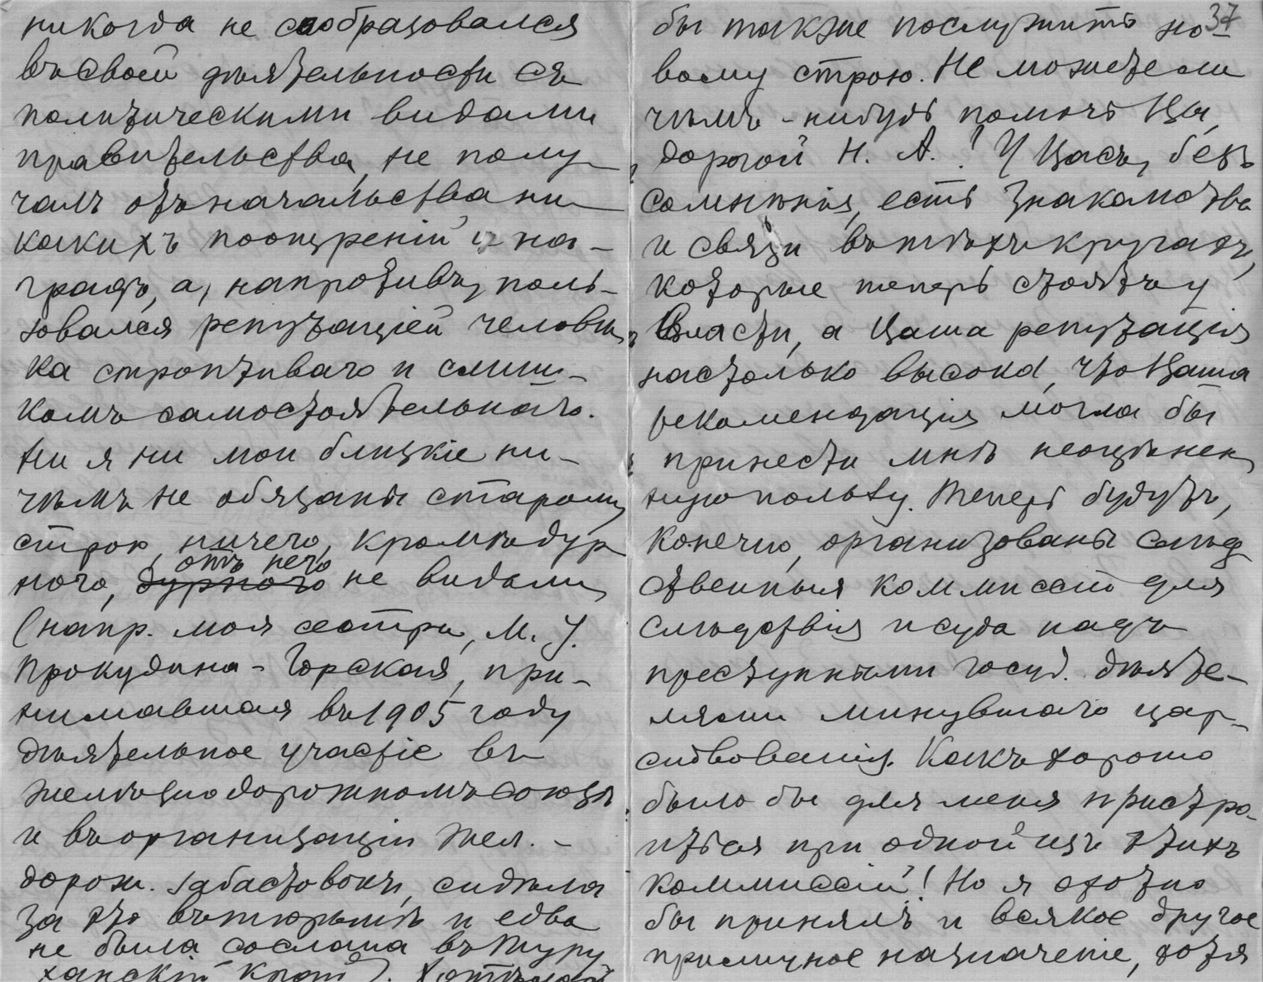 никогда не сообразовался
въ своей дѣятельности съ
политическими видами
правительства, не полу-
чалъ отъ начальства ни-
какихъ поощреній и на-
градъ, а, напротивъ, поль-
зовался репутаціей человѣ-
ка строптиваго и слиш-
комъ самостоятельнаго.
Ни я ни мои близкіе ни-
чѣмъ не обязаны старому
строю, ничего, кромѣ дур-
ного, дурного отъ него не видали
(напр. моя сестра, М. У.
Прокудина-Горская, при-
нимавшая въ 1905 году
дѣятельное участіе въ
желѣзнодорожномъ союзѣ
и въ организаціи жел.-
дорож. забастовокъ, сидѣла
за это въ тюрьмѣ и едва
не была сослана въ Туру-
ханскій край). Хотѣлось
37
бы также послужить но-
вому строю. Не можете ли
чѣмъ-нибудь помочь Вы,
дорогой Н. А.! У Васъ, безъ
сомнѣнія, есть знакомства
и связи въ тѣхъ кругахъ,
которые теперь стоятъ у
власти, а Ваша репутація
настолько высока, что Ваша
рекомендація могла бы
принести мнѣ неоцѣнен-
ную пользу. Теперь будутъ,
конечно, организованы слѣд-
ственныя коммиссіи для
слѣдствія и суда надъ
преступными госуд. дѣяте-
лями минувшаго цар-
ствованія. Какъ хорошо
было бы для меня пристро-
иться при одной изъ этихъ
коммиссій! Но я охотно
бы принялъ и всякое другое
приличное назначеніе, хотя